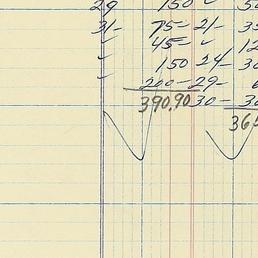 29 150 ✓ 50
31- 75= 21- 35
✓ 45= ✓ 12
✓ 150 24- 30
✓ 200- 29-
390.90 30- 30
365